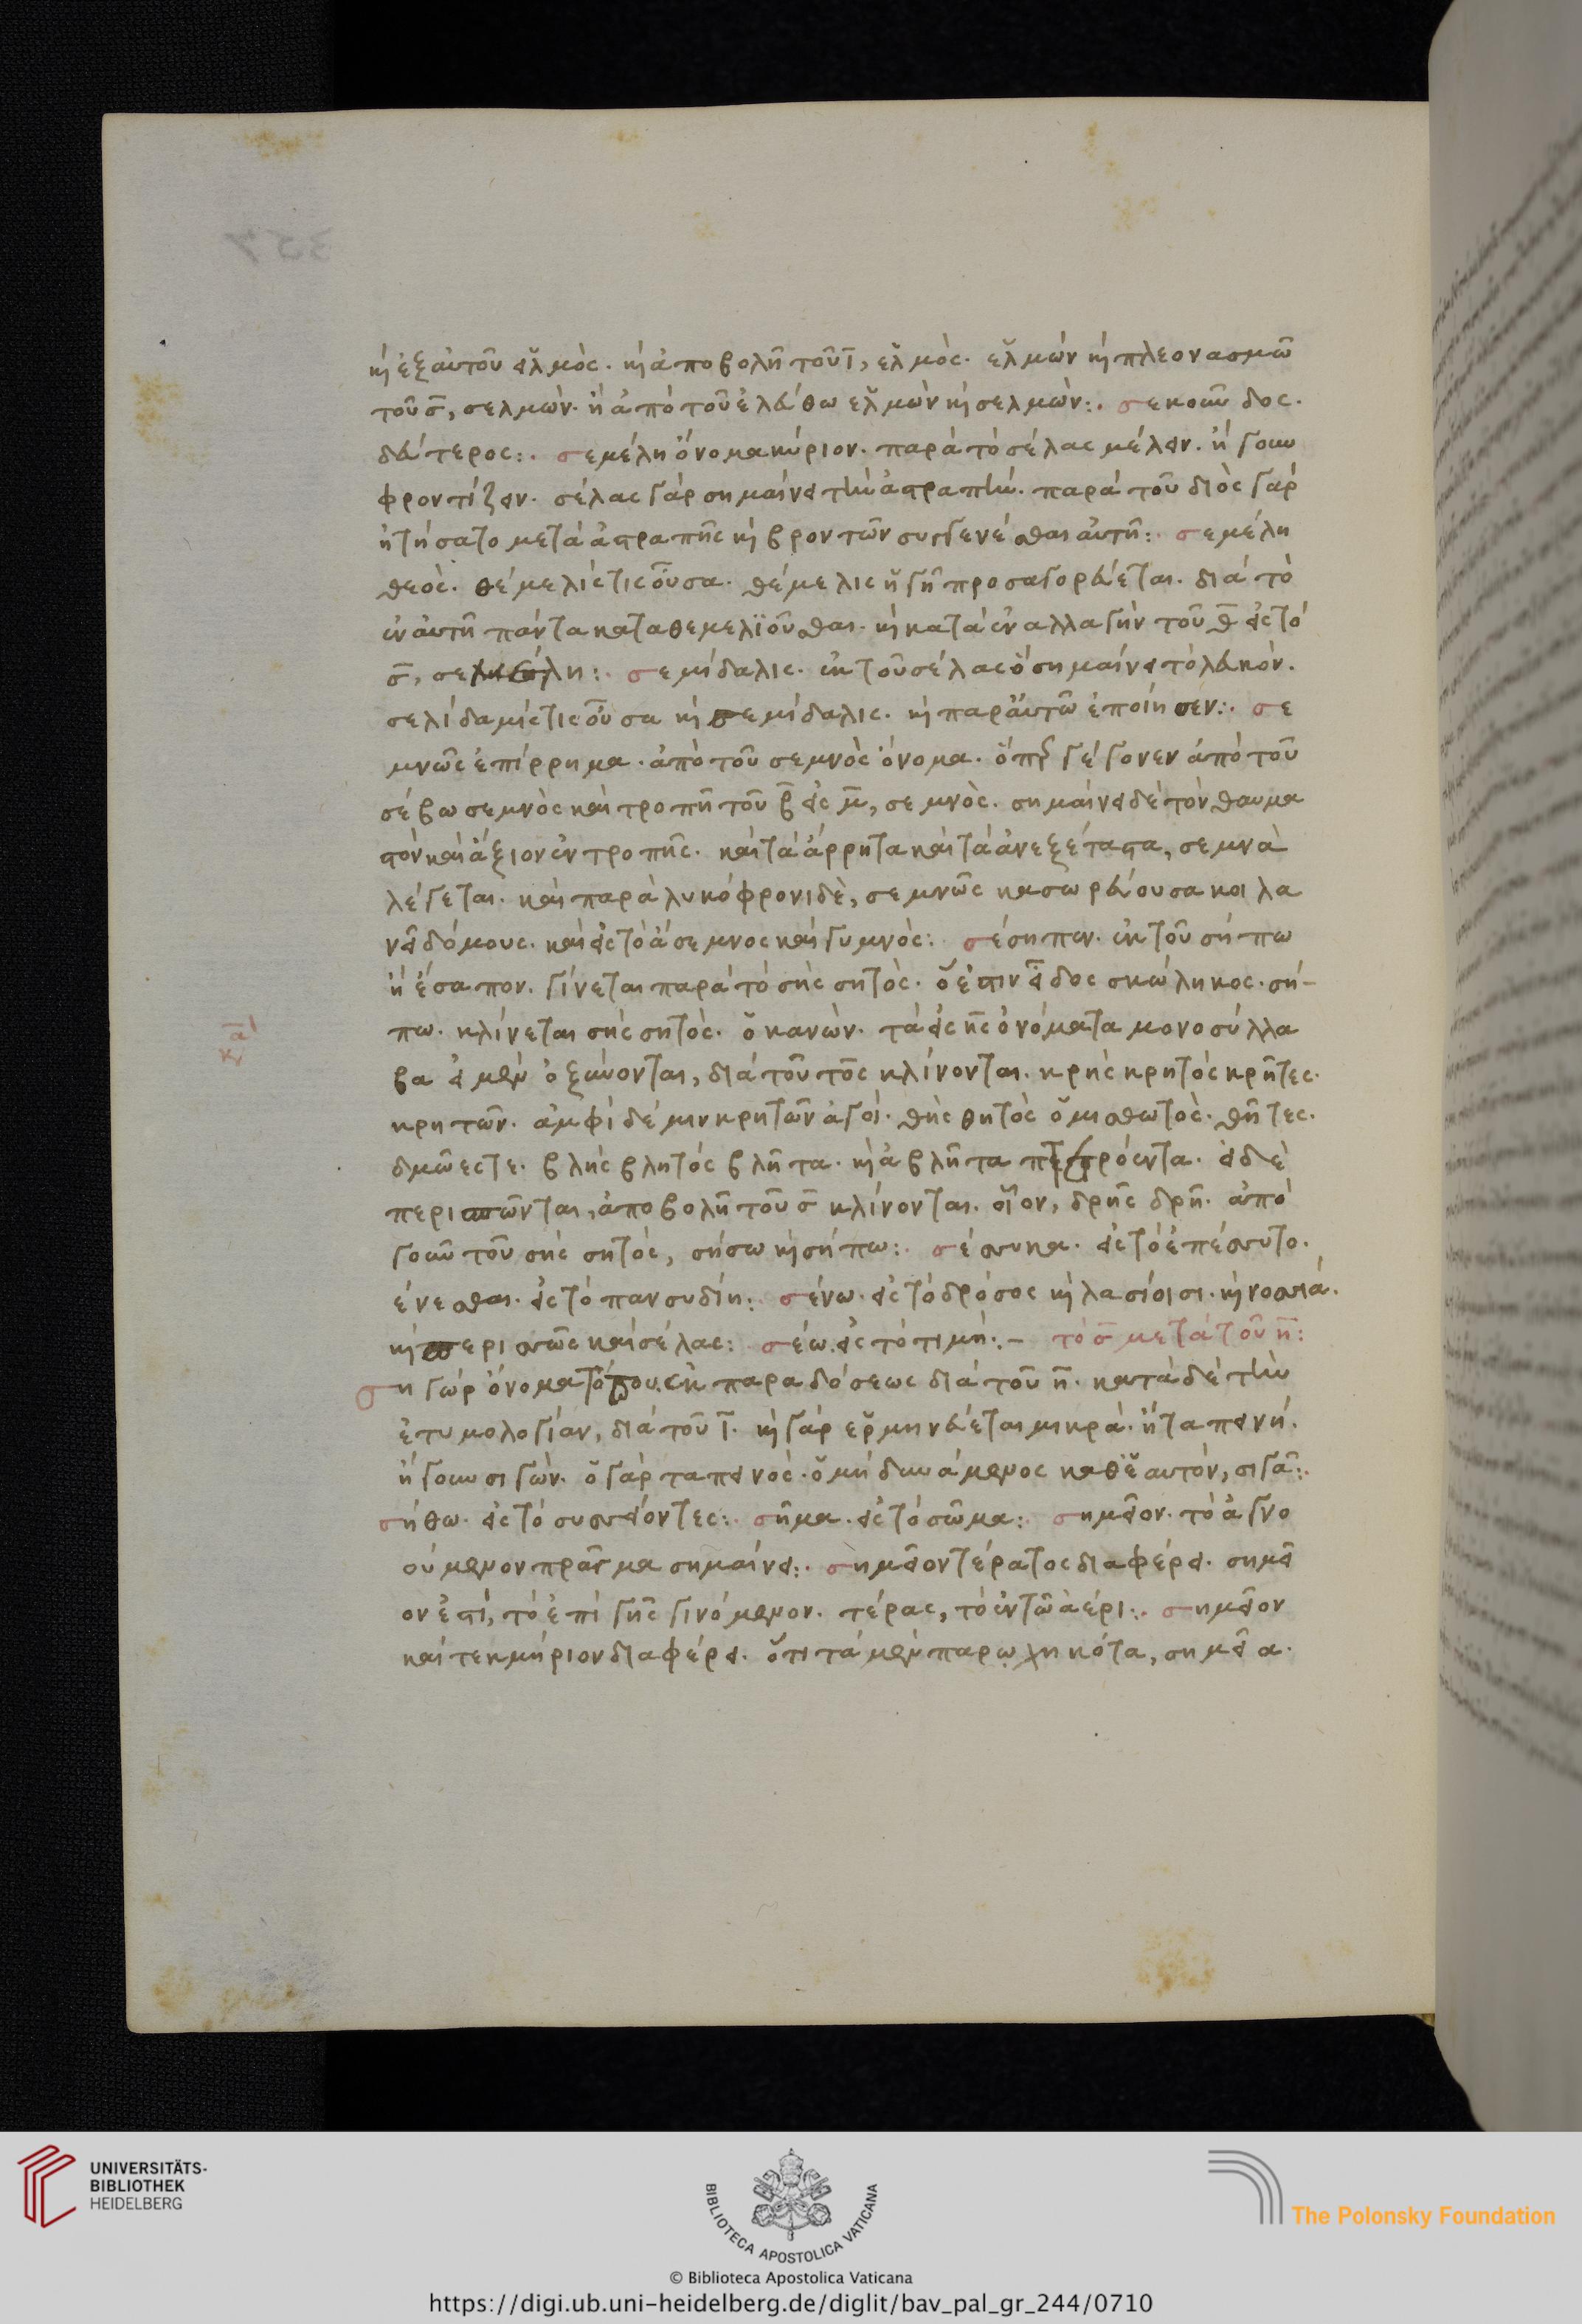 357
κὶ ἐξ αὐτοῦ εἱλμός. κὶ ἀποβολῆ τοῦ ϊ, ἑλμός. ἑλμών κὶ πλεονασμῶ
τοῦ σ, σελμών. ἢ ἀπὸ τοῦ ἐλεύθω ἑλμών κὶ σελμών:. σεκοῦνδος.
δεύτερος:. σεμέλη ὄνομα κύριον. παρὰ τὸ σέλας μέλειν. ἤγουν
φροντίζειν. σέλας γὰρ σημαίνει τὴν ἀστραπήν. παρὰ τοῦ διὸς γὰρ
ἠτήσατο μετὰ ἀστραπῆς κὶ βροντῶν συγγενέσθαι αὐτῆ:. σεμέλη
θεός. θέμελίς τις οὖσα. θέμελις ἡ γῆ προσαγορεύεται. διὰ τὸ
ἐν αὐτῆ πάντα καταθεμελιοῦσθαι. κὶ κατὰ ἐναλλαγὴν τοῦ θ εἰς τὸ
σ, σεμέλη:. σεμίδαλις. ἐκ τοῦ σέλας ὃ σημαίνει τὸ λευκόν.
σελίδαμίς τις οὖσα κὶ σεμίδαλις. κὶ παρ' αὐτῶ ἐποίησεν:. σε
μνῶς ἐπίρρημα. ἀπὸ τοῦ σεμνὸς ὄνομα. ὅπερ γέγονεν ἀπὸ τοῦ
σέβω σεμνὸς καὶ τροπῆ τοῦ β εἰς μ, σεμνός. σημαίνει δὲ τὸν θαυμα
στὸν καὶ ἄξιον ἐντροπῆς. καὶ τὰ ἄρρητα καὶ τὰ ἀνεξέταστα, σεμνὰ
λέγεται. καὶ παρὰ λυκόφρονι δὲ, σεμνῶς κασωρεύουσα κοιλα
νεῖ δόμους. καὶ εἰς τὸ ἄσεμνος καὶ γυμνός:. σέσηπεν. ἐκ τοῦ σήπω
ἢ ἔσαπον. γίνεται παρὰ τὸ σής σητός. ὅ ἐστιν εἶδος σκώληκος. σή-
πω. κλίνεται σής σητός. ὁ κανών. τὰ εἰς ης ὀνόματα μονοσύλλα
βα εἰ μὲν ὀξύνονται, διὰ τοῦ τος κλίνονται. κρής κρητός κρῆτες.
κρητῶν. ἀμφὶ δέ μιν κρητῶν ἀγοί. θής θητός ὁ μισθωτός. θῆτες.
δμῶές τε. βλής βλητός βλῆτα. κὶ ἀβλῆτα πτερόεντα. εἰ δὲ
περισπῶνται, ἀποβολῆ τοῦ σ κλίνονται. οἷον, δρῆς δρῆ. ἀπὸ
γοῦν τοῦ σής σητός, σήσω κὶ σήπω:. σέσυκα. εἰς τὸ ἐπέσσυτο.
σένεσθαι. εἰς τὸ πανσυδίη:. σένω. εἰς τὸ δρόσος κὶ λασίοισι. κὶ νοσσιά.
κὶ περισσῶς καὶ σέλας:. σέω. εἰς τὸ τιμή:.- τὸ σ μετὰ τοῦ η:
σηγώρ ὄνομα τόπου. ἐκ παραδόσεως διὰ τοῦ η. κατὰ δὲ τὴν
ἐτυμολογίαν, διὰ τοῦ ϊ. κὶ γὰρ ἑρμηνεύεται μικρά. ἢ ταπεινή.
ἤγουν σιγών. ὁ γὰρ ταπεινός. ὁ μὴ δυνάμενος καθ' ἑαυτόν, σιγᾶ:.
σήθω. εἰς τὸ συσσείοντες:. σῆμα. εἰς τὸ σῶμα:. σημεῖον. τὸ ἀγνο
ούμενον πρᾶγμα σημαίνει:. σημεῖον τέρατος διαφέρει. σημεῖ
ον ἐστί, τὸ ἐπὶ γῆς γινόμενον. τέρας, τὸ ἐν τῶ ἀέρι:. σημεῖον
καὶ τεκμήριον διαφέρει. ὅτι τὰ μὲν παρῳχηκότα, σημεῖα.
UNIVERSITÄTS-
BIBLIOTHEK
HEIDELBERG
BIBLIOTECA APOSTOLICA VATICANA
The Polonsky Foundation
© Biblioteca Apostolica Vaticana
https://digi.ub.uni-heidelberg.de/diglit/bav_pal_gr_244/0710